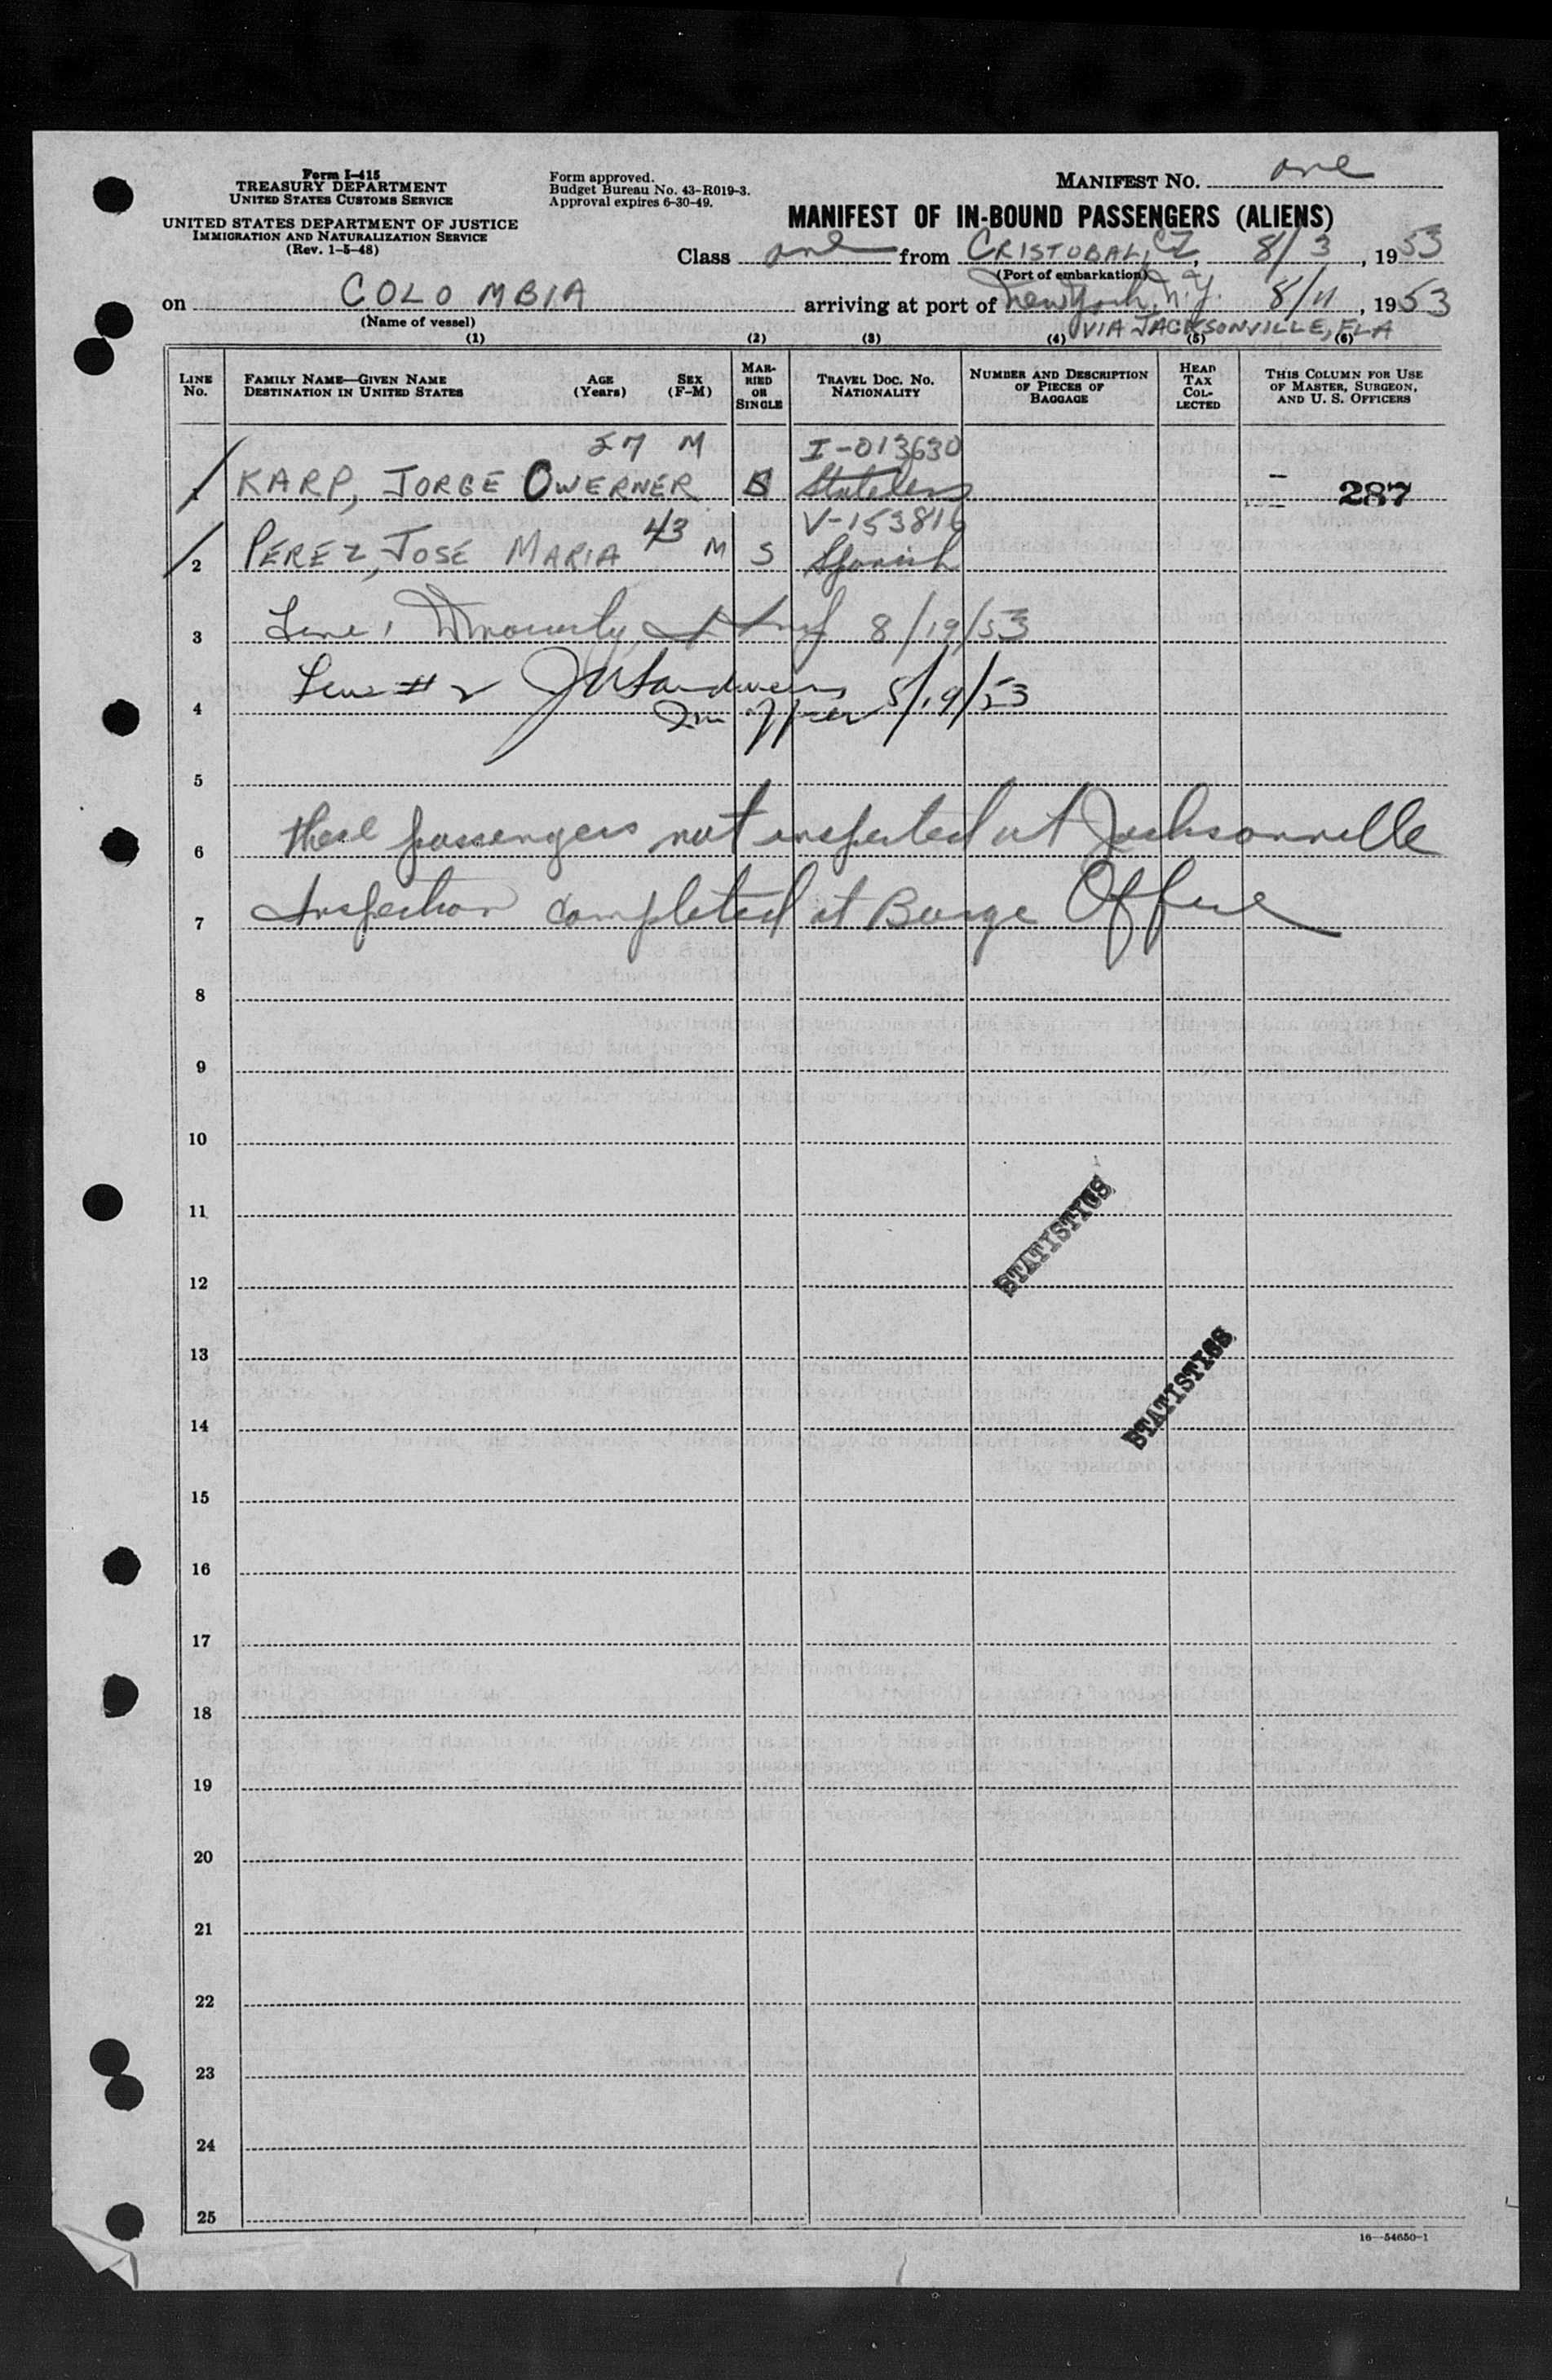 Form I-415
TREASURY DEPARTMENT
UNITED STATES CUSTOMS SERVICE
UNITED STATES DEPARTMENT OF JUSTICE
IMMIGRATION AND NATURALIZATION SERVICE
(Rev. 1-5-48)
Form approved.
Budget Bureau No. 43-R019-3.
Approval expires 6-30-49.
MANIFEST NO. one
MANIFEST OF IN-BOUND PASSENGERS (ALIENS)
Class one from CRISTOBAL, CZ, 8/3, 1953
(Port of embarkation)
on COLOMBIA arriving at port of New York, N.Y. 8/11, 1953
(Name of vessel)
VIA JACKSONVILLE, FLA
(1) (2) (3) (4) (5) (6)
LINE No. FAMILY NAME—GIVEN NAME DESTINATION IN UNITED STATES AGE (Years) SEX (F-M) MARRIED OR SINGLE TRAVEL DOC. NO. NATIONALITY NUMBER AND DESCRIPTION OF PIECES OF BAGGAGE HEAD TAX COLLECTED THIS COLUMN FOR USE OF MASTER, SURGEON, AND U. S. OFFICERS
27 M I-013630
1 KARP, JORGE OWERNER S Stateless - 287
43 V-153816
2 PEREZ, JOSE MARIA M S Spanish
3 Line 1 8/19/53
4 Line # 2 8/19/53
Im Officer
5
6 These passengers not inspected at Jacksonville
7 Inspection completed at Barge Office
8
9
10
11
STATISTICS
12
13
STATISTICS
14
15
16
17
18
19
20
21
22
23
24
25
16—54650-1